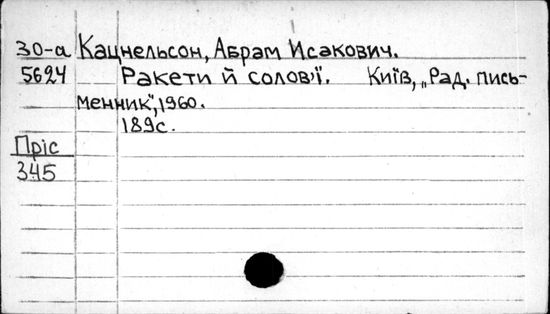 30-а Кацнельсон, Абрам Исакович.
5624 Ракети й солов'ї. Київ, „Рад. пись-
менник", 1960.
189с.
Пріс
345